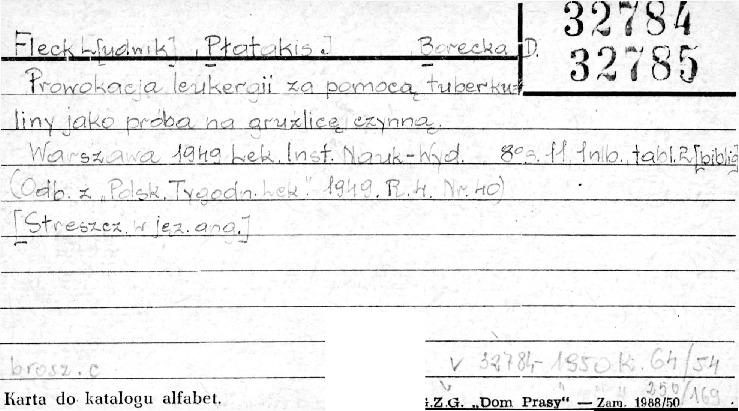 32784
32785
Fleck L[udwik] , Płatakis. J Borecka D.
Prowokacja leukergii za pomocą tuberku=
liny jako próba na gruźlicę czynną.
Warszawa 1949 Lek. Inst. Nauk-Wyd. 8o s. 11 1nlb. tabl. 2 [biblig
(Odb. z „Polsk. Tygodn. Lek." 1949. R. 4. Nr. 40)
[Streszcz. w jęz. ang.]
brosz. c v 32784- 1950 K. 64/54
250/169
Karta do katalogu alfabet. Z.G. „Dom Prasy" — Zam. 1988/50